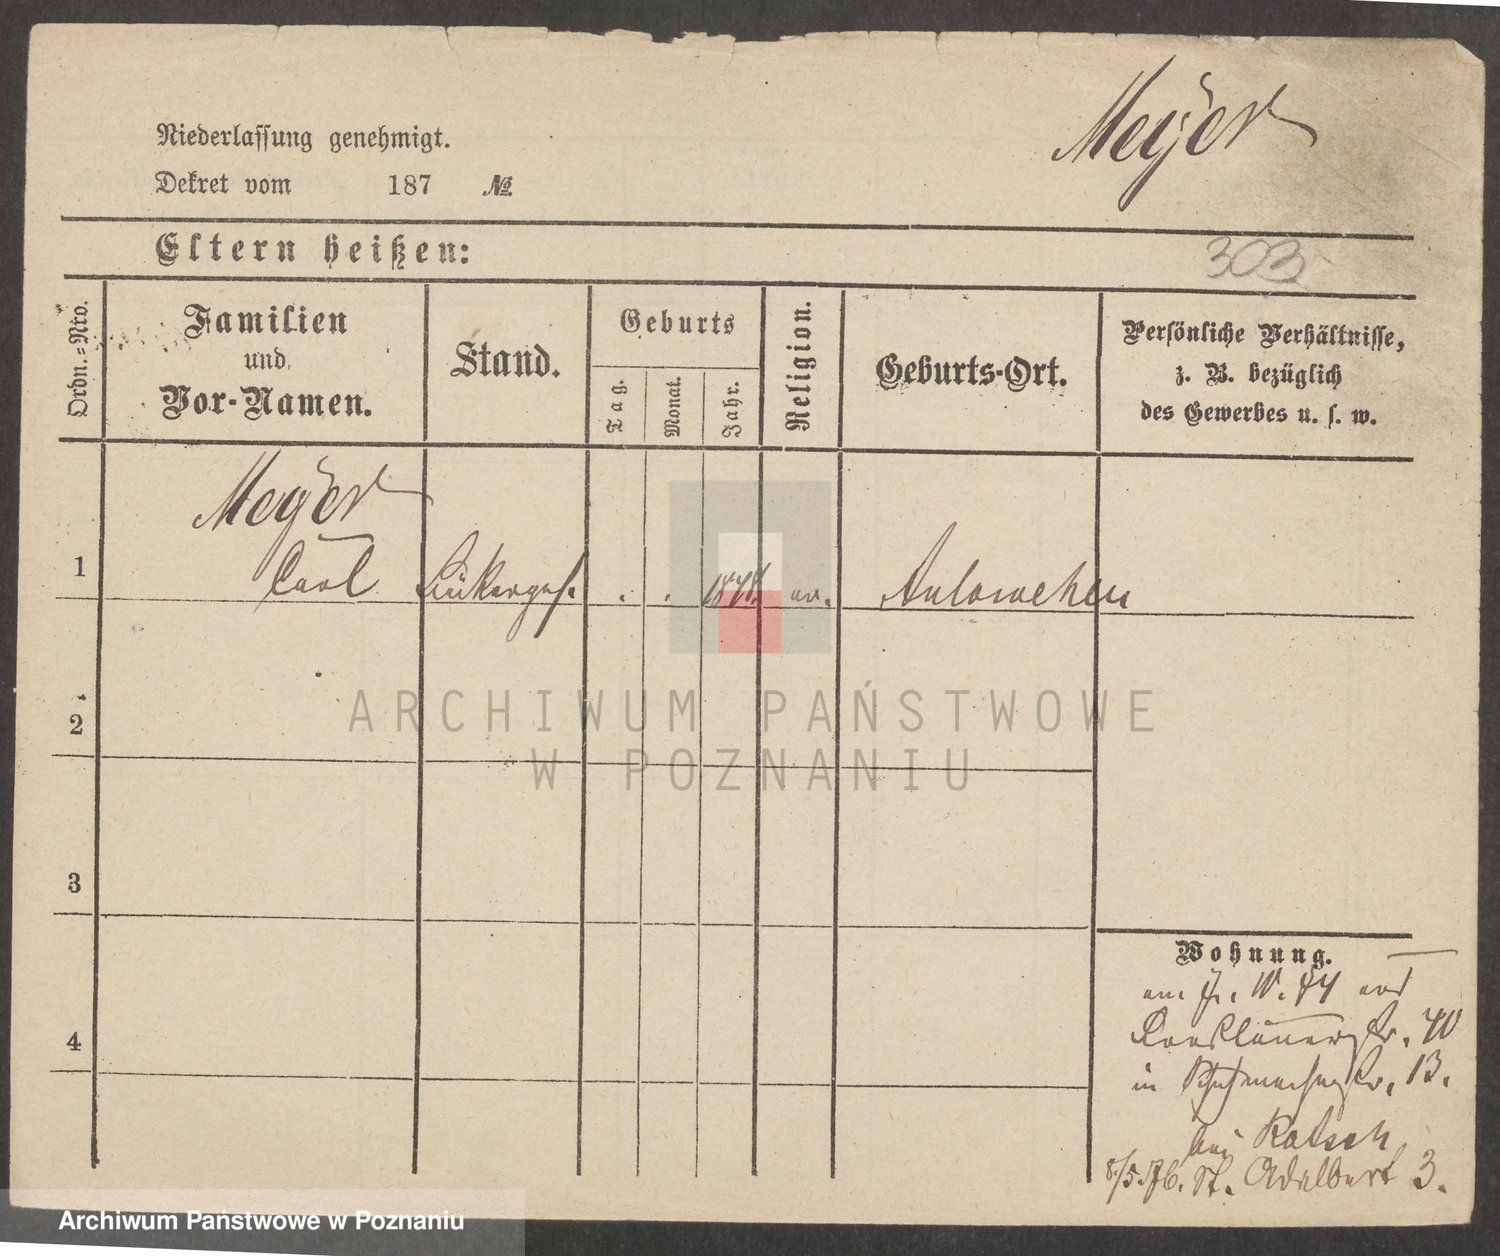 Niederlassung genehmigt.
Dekret vom 187 №
Meyer
Eltern heißen:
303
Ordn.=Nro.
Familien
und
Vor-Namen.
Stand.
Geburts
Tag.
Monat.
Jahr.
Religion.
Geburts-Ort.
Persönliche Verhältnisse,
z. B. bezüglich
des Gewerbes u. s. w.
Meyer
1
Carl
ev.
2
3
4
Wohnung.
in Schuhmacherstr. 13.
bei Ratsch
8/5.76. St. Adalbert 3.
ARCHIWUM PAŃSTWOWE
W POZNANIU
Archiwum Państwowe w Poznaniu